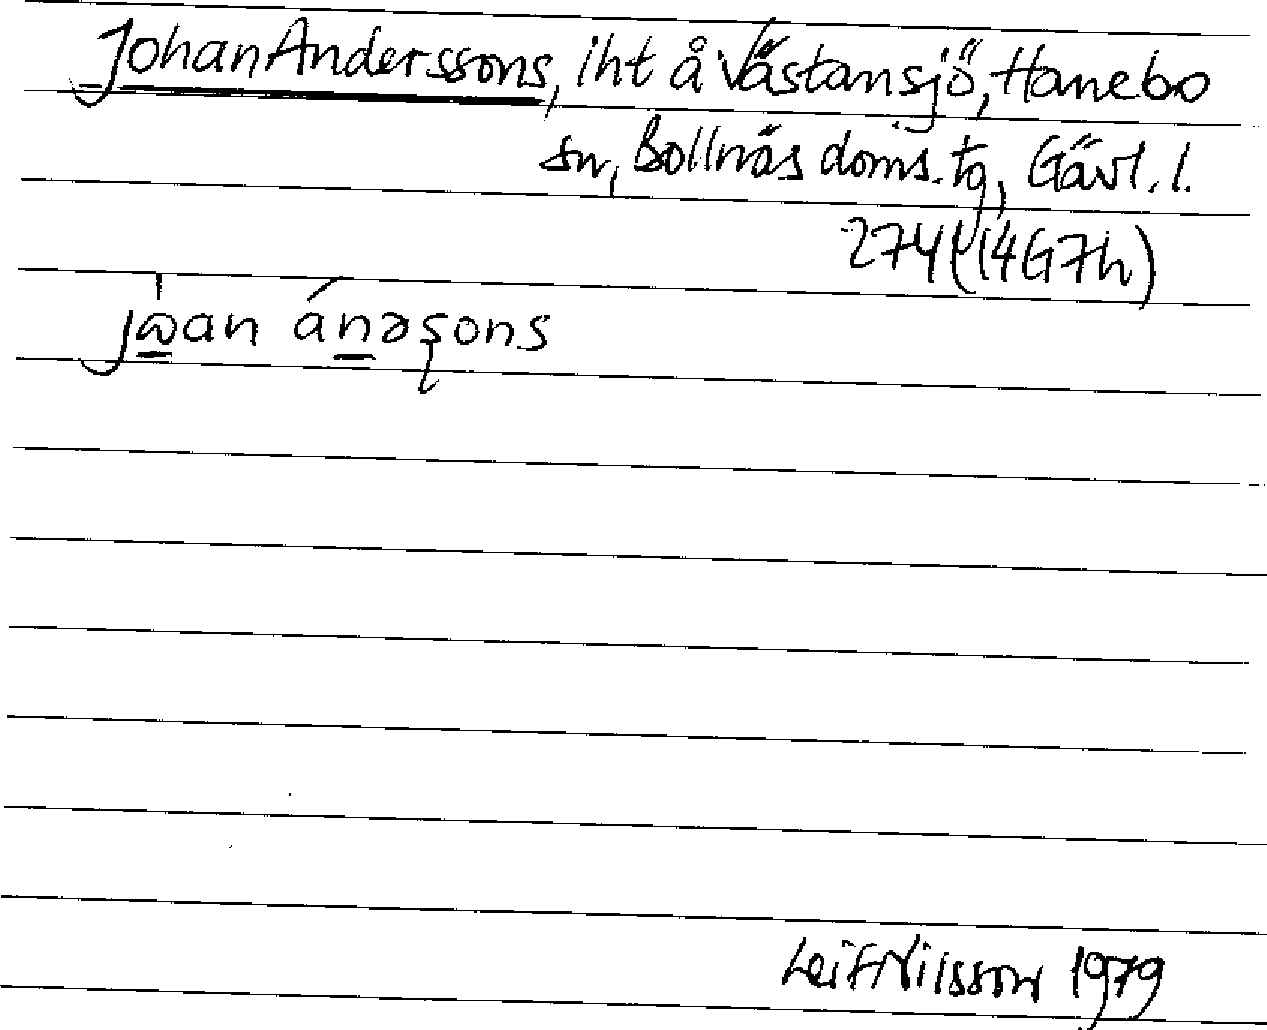 Johan Anderssons, iht å Västansjö, Hanebo
sn, Bollnäs doms. tg, Gävl. l.
274 (14G7h)
jὼan ánəʂons
Leif Nilsson 1979